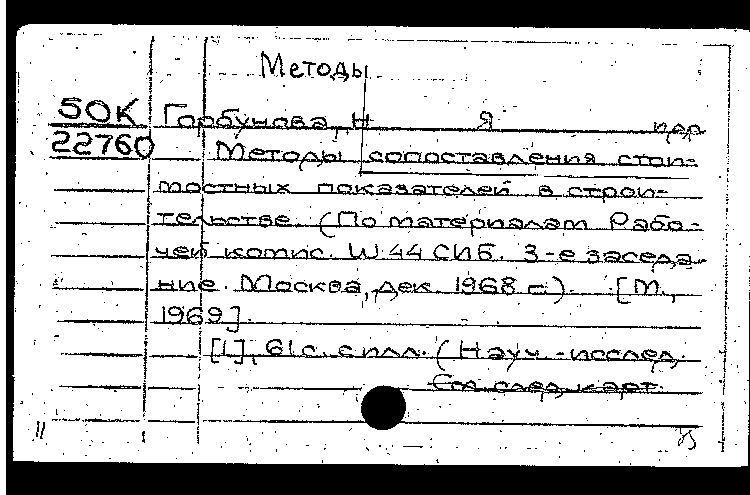 Методы
50К Горбунова, Н Я пер
22760 Методы сопоставления стои-
мостных показателей в строи-
тельстве. (По материалам Рабо-
чей комис. W 44 СИБ. 3-е заседа-
ние. Москва, дек. 1968 г.). [М.,
1969].
[1], 61 с. с илл. (Науч.-исслед.
См. след. карт.